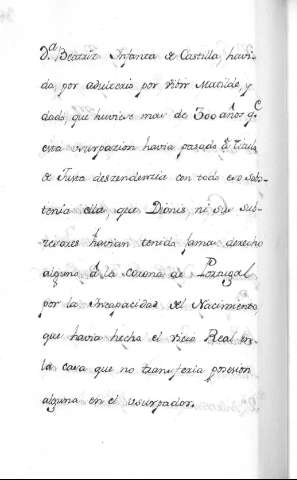 D.ª Beatriz Infanta de Castilla, havi-
da por adulterio por vivir Matilde, y
dado, que huviere mas de 300 años q.e
esta usurpazion havia pasado à Titulo
de Justa deszendencia con todo eso sos-
tenia ella que Dionis ni sus sub-
cesores havian tenido jamas derecho
alguno à la corona de Portugal
por la Incapacidad del Nacimiento
que havia hecho el vicio Real en
la cosa que no transferia posesion
alguna en el usurpador.